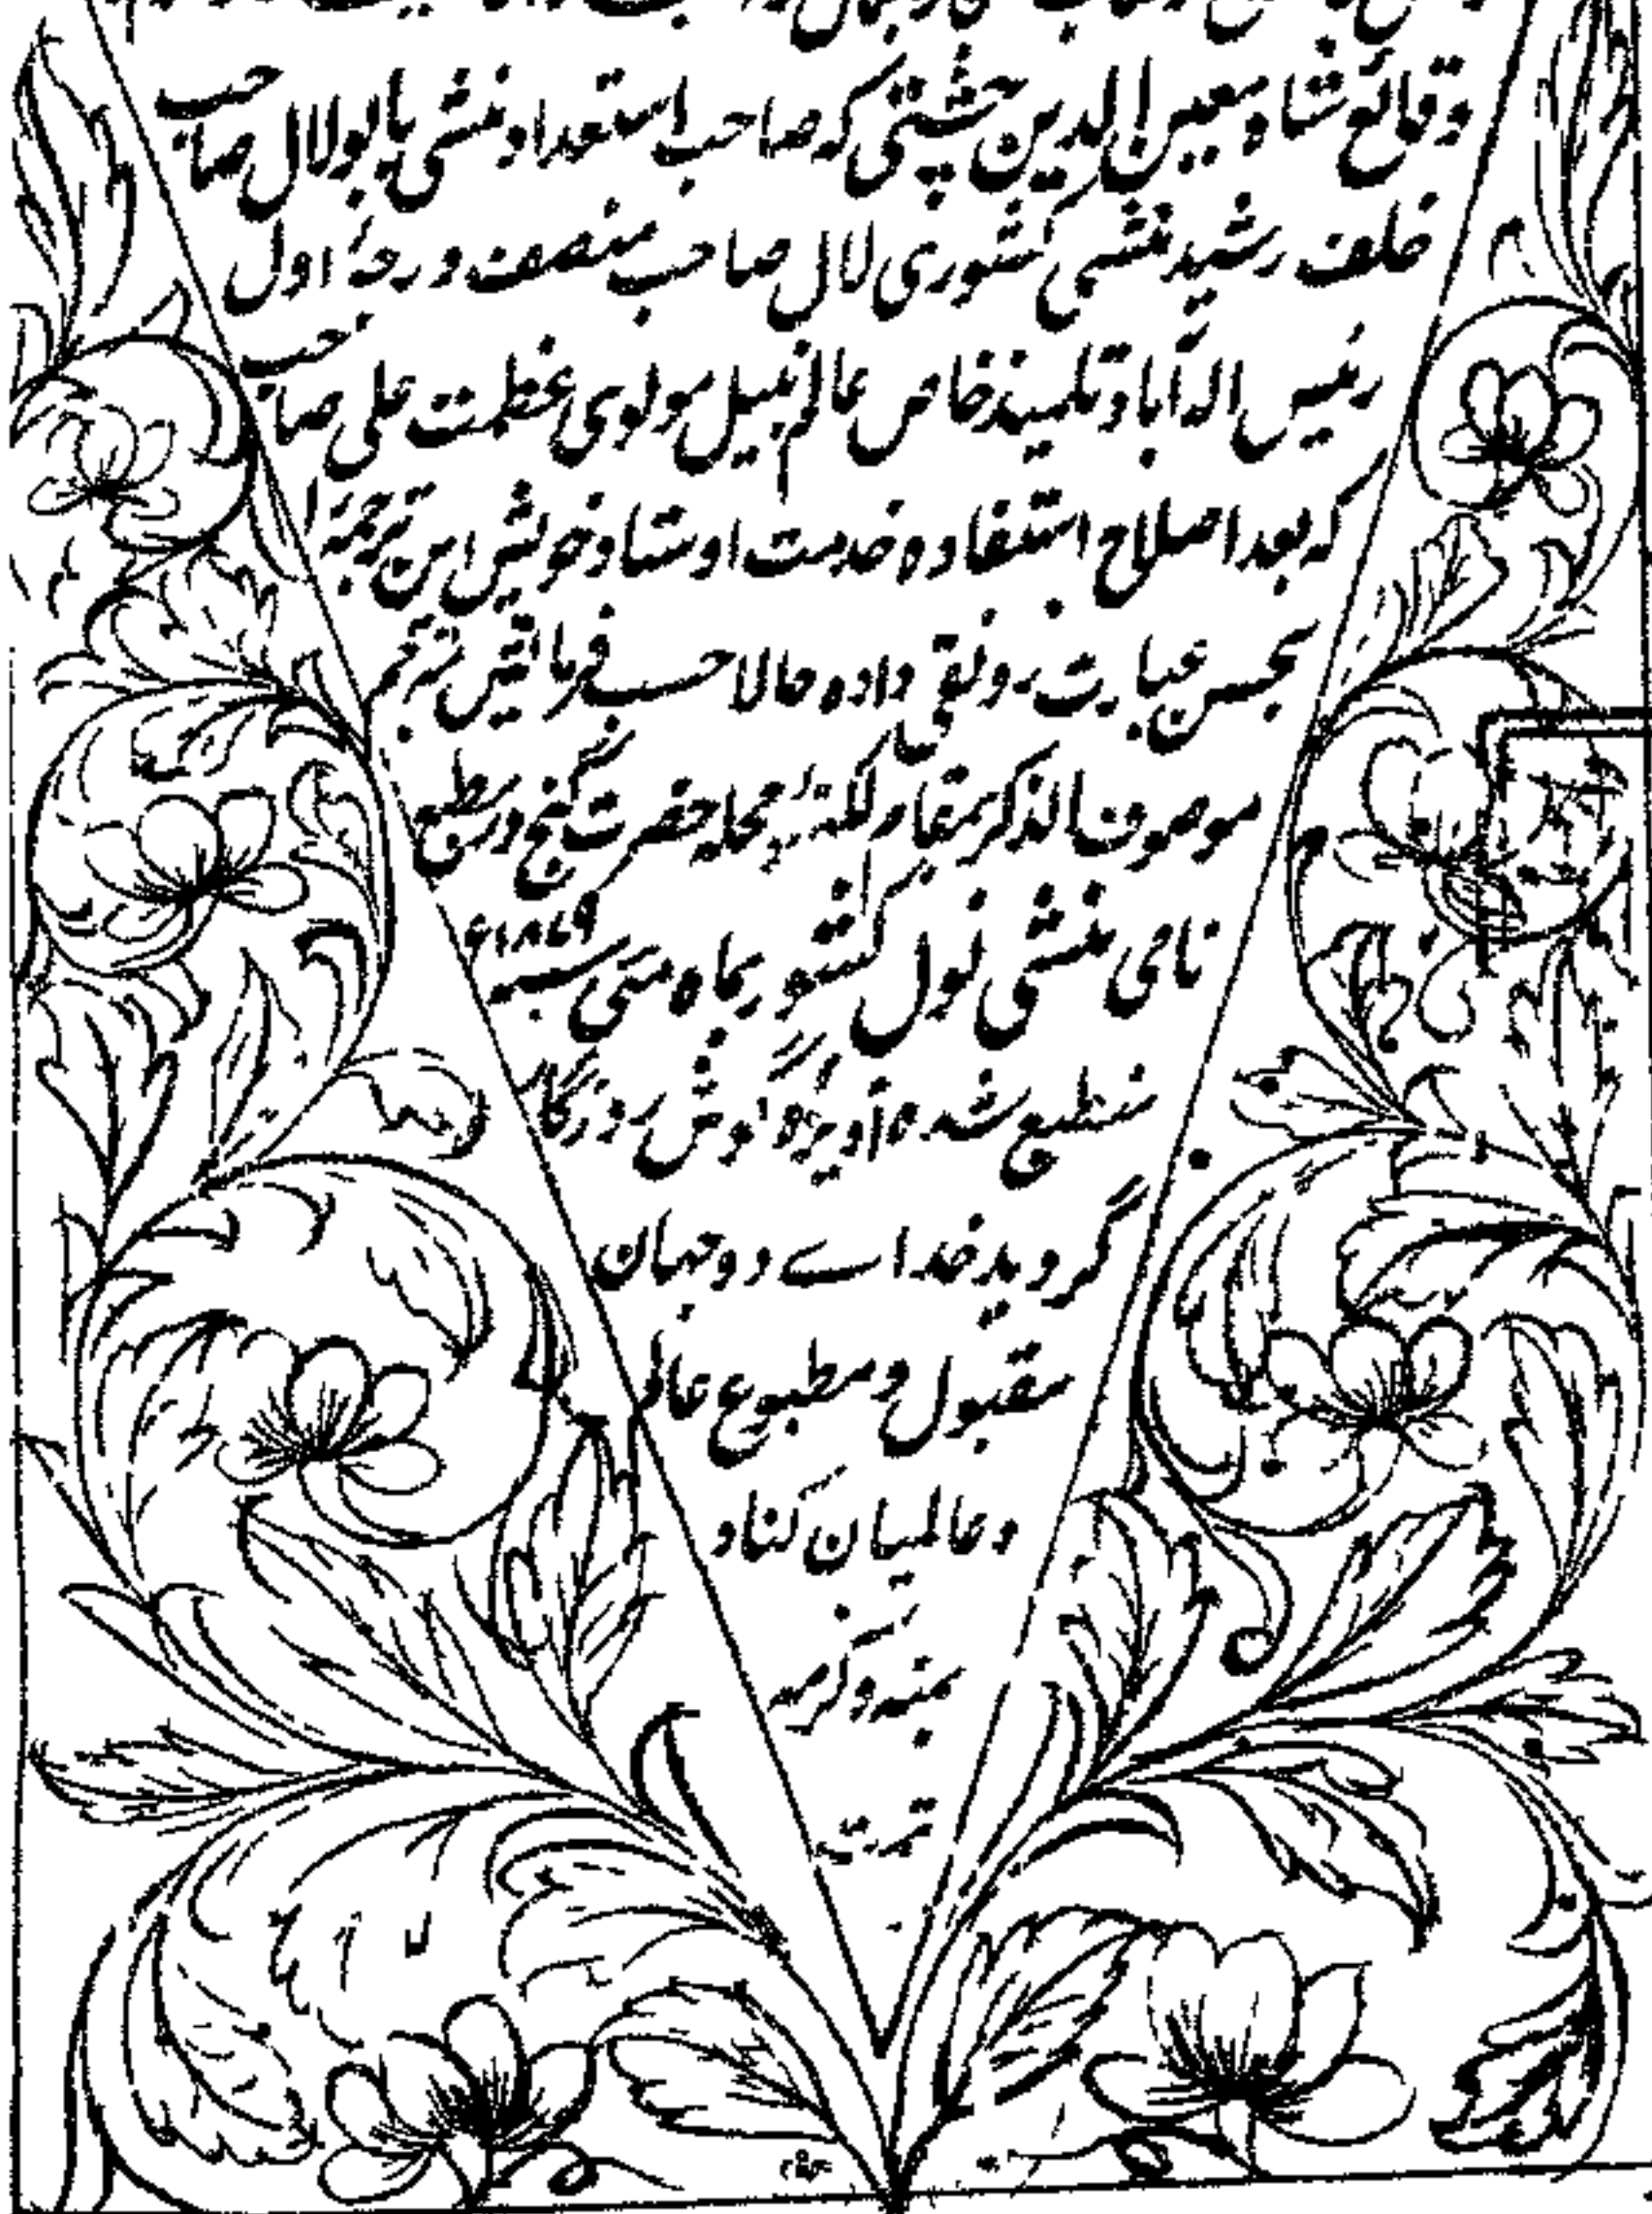 وقائع شاه معین الدین چشتی که صاحب استعداد منشی بابولال صاحب
خلف رشید منشی کشوری لال صاحب منصف درجهٔ اول
رئیس اله آباد تلمیذ خاص عالم نبیل مولوی عظمت علی صاحب
که بعد اصلاح استفاده خدمت اوستاد خویش این ترجمه را
بحسن عبارت رونق داده حالا حسب فرمائش مترجم
موصوف الذکر بمقام لکهنؤ محله حضرت گنج در مطبع
نامی منشی نول کشور بماه مئی سنه ۱۸۷۹ء
منطبع شده آویزهٔ گوش روزگار
گردید خداے دو جهان
مقبول و مطبوع عالم
و عالمیان کناد
بمنه و کرمه
تمت